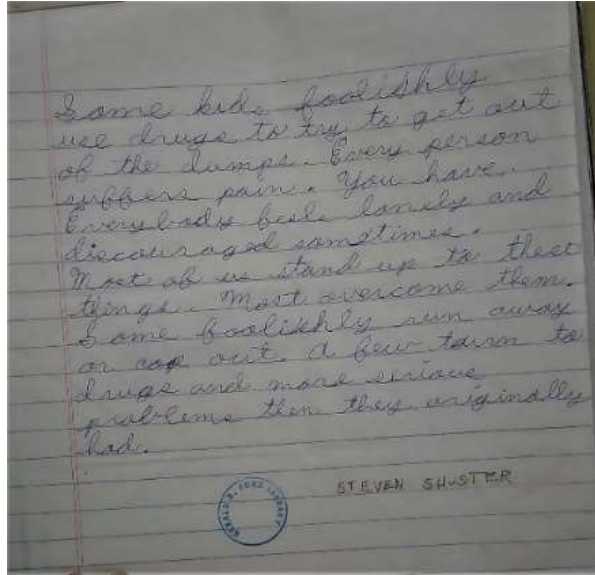 Some kids foolishly
use drugs to try to get out
of the dumps. Every person
suffers pain. You have.
Everybody feels lonely and
discouraged somstimes.
Most of us stand up to these
things. Most overcome them.
Some foolishly run away
or cop out. A few turn to
drugs and more serious
problems then they originally
had.
STEVEN SHUSTER
GERALD R. FORD LIBRARY